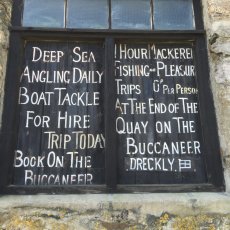 DEEP SEA
ANGLING DAILY
BOAT TACKLE
FOR HIRE
TRIP TODAY
BOOK ON THE
BUCCANEER
1 HOUR MACKEREL
FISHING OR PLEASURE
TRIPS PER PERSON
AT THE END OF THE
QUAY ON THE
BUCCANEER
DRECKLY.